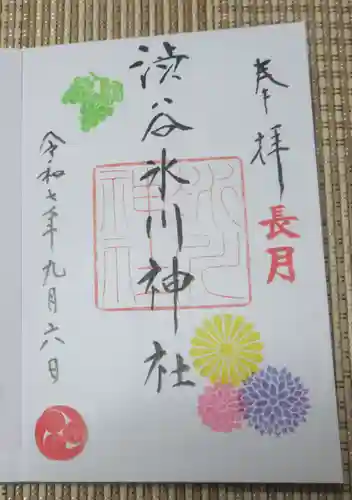 奉拝
長月
渋谷氷川神社
令和七年九月六日